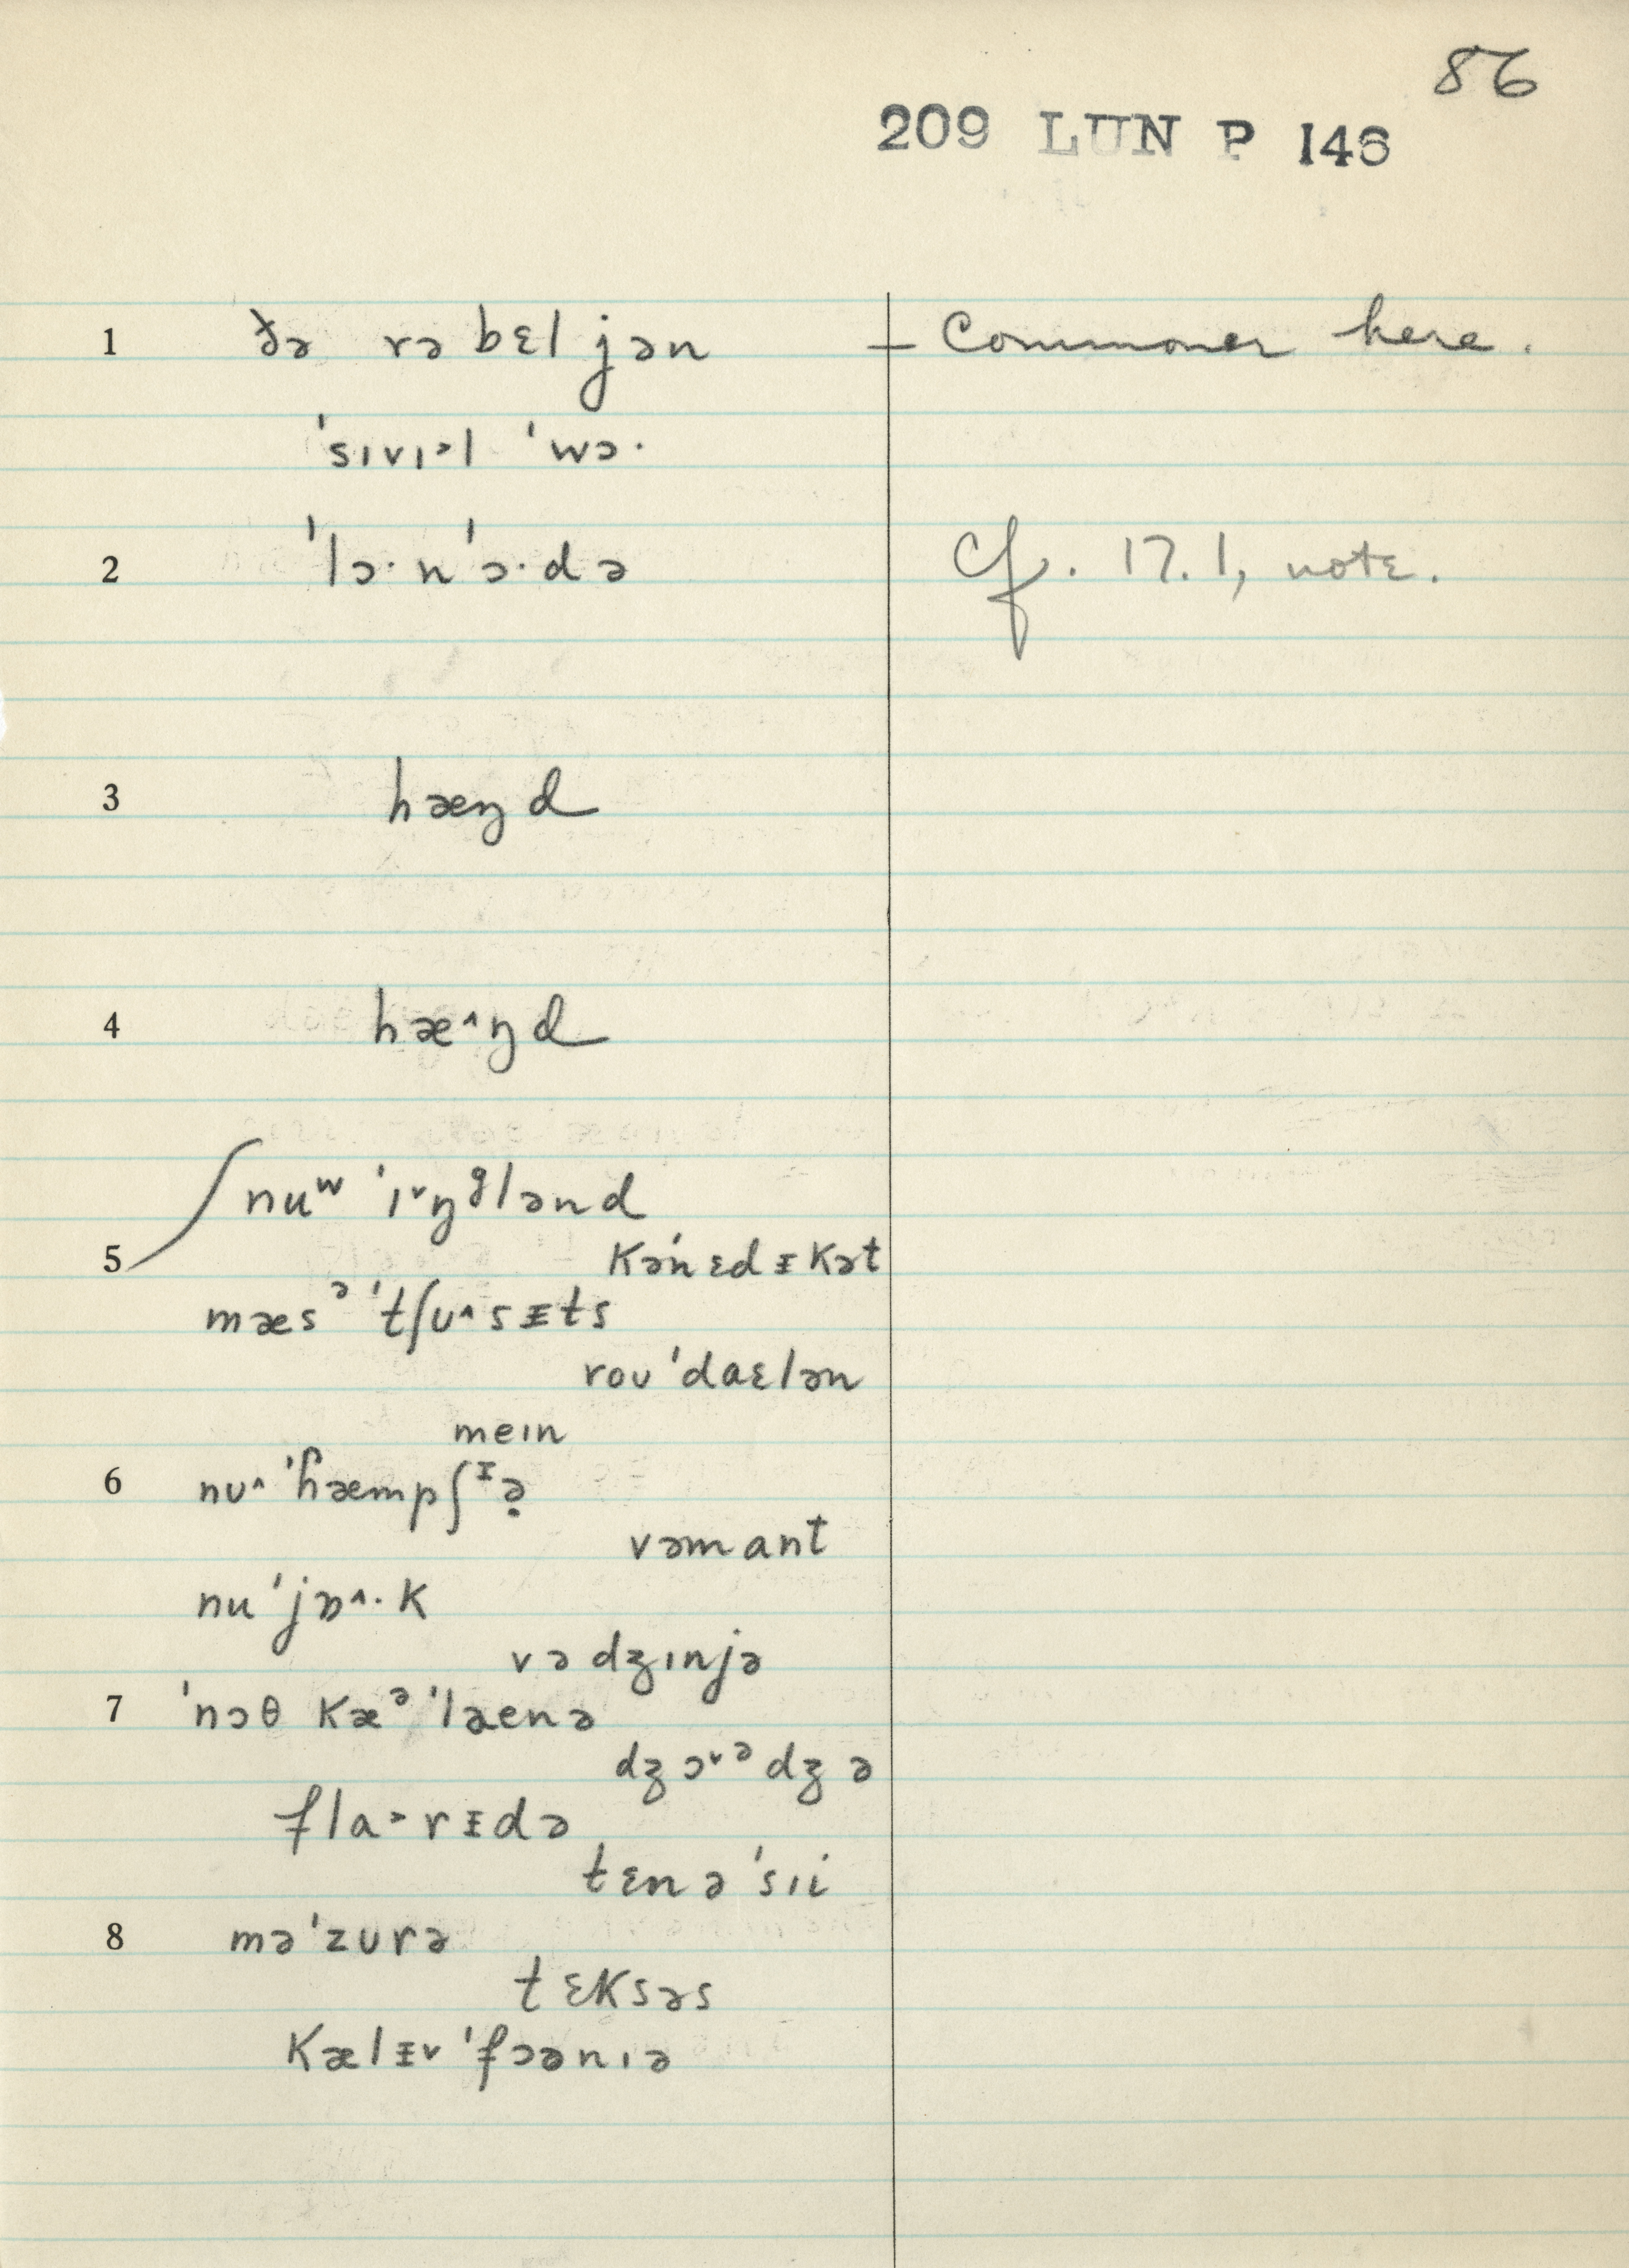 86
209 LUN P 146
1 ðə rəbɛljən — Commoner here.
ˈsɪvɪ˃l ˈwɔ·
2 ˈlɔ·nˈɔ·də Cf. 17.1, note.
3 hæŋd
4 hæ˄ŋd
nuʷ ˈɪ˅ŋᶢlənd
5 kəˈnɛdᵻkət
mæsᵊˈtʃʊ˄sᵻts
roʊˈdaɛlən
meɪn
6 nʊ˄ˈɦæmpʃᶧə̣
vəmant
nuˈjɒ˄·k
vədʒɪnjə
7 ˈnɔθ kæᵊˈlaenə
dʒɔ˅ᵊdʒə
fla˃rᵻdə
tɛnəˈsɪi
8 məˈzʊrə
tɛksəs
kælᵻ˅ˈfɔənɪə